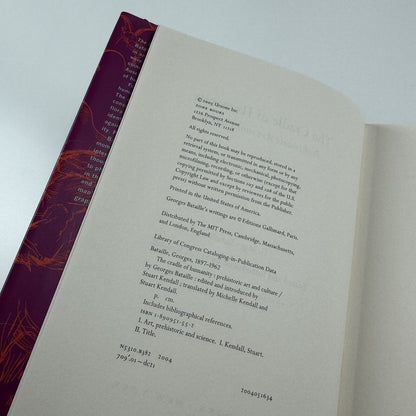 © 2005 Urzone Inc.
ZONE BOOKS
1226 Prospect Avenue
Brooklyn, NY 11218
All rights reserved.
No part of this book may be reproduced, stored in a
retrieval system, or transmitted in any form or by any
means, including electronic, mechanical, photocopying,
microfilming, recording, or otherwise (except for that
copying permitted by Sections 107 and 108 of the U.S.
Copyright Law and except by reviewers for the public
press) without written permission from the Publisher.
Printed in the United States of America.
Georges Bataille's writings are © Editions Gallimard, Paris.
Distributed by The MIT Press, Cambridge, Massachusetts,
and London, England
Library of Congress Cataloging-in-Publication Data
Bataille, Georges, 1897-1962
The cradle of humanity : prehistoric art and culture /
by Georges Bataille ; edited and introduced by
Stuart Kendall ; translated by Michelle Kendall and
Stuart Kendall.
p. cm.
Includes bibliographical references.
ISBN 1-890951-55-2
1. Art, prehistoric and science. I. Kendall, Stuart.
II. Title.
N5310.B382 2004
709'.01 – dc21
2004051634